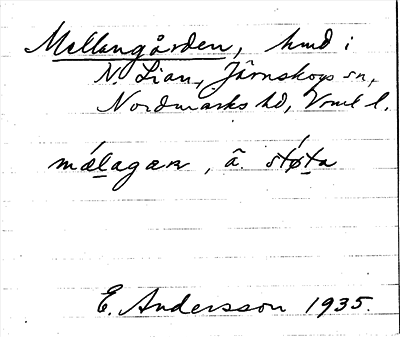 Mellangården, hmd i
N. Lian, Järnskogs sn,
Nordmarks hd, Vrml l.
málagaɴ, ä. stǿta
E. Andersson 1935.